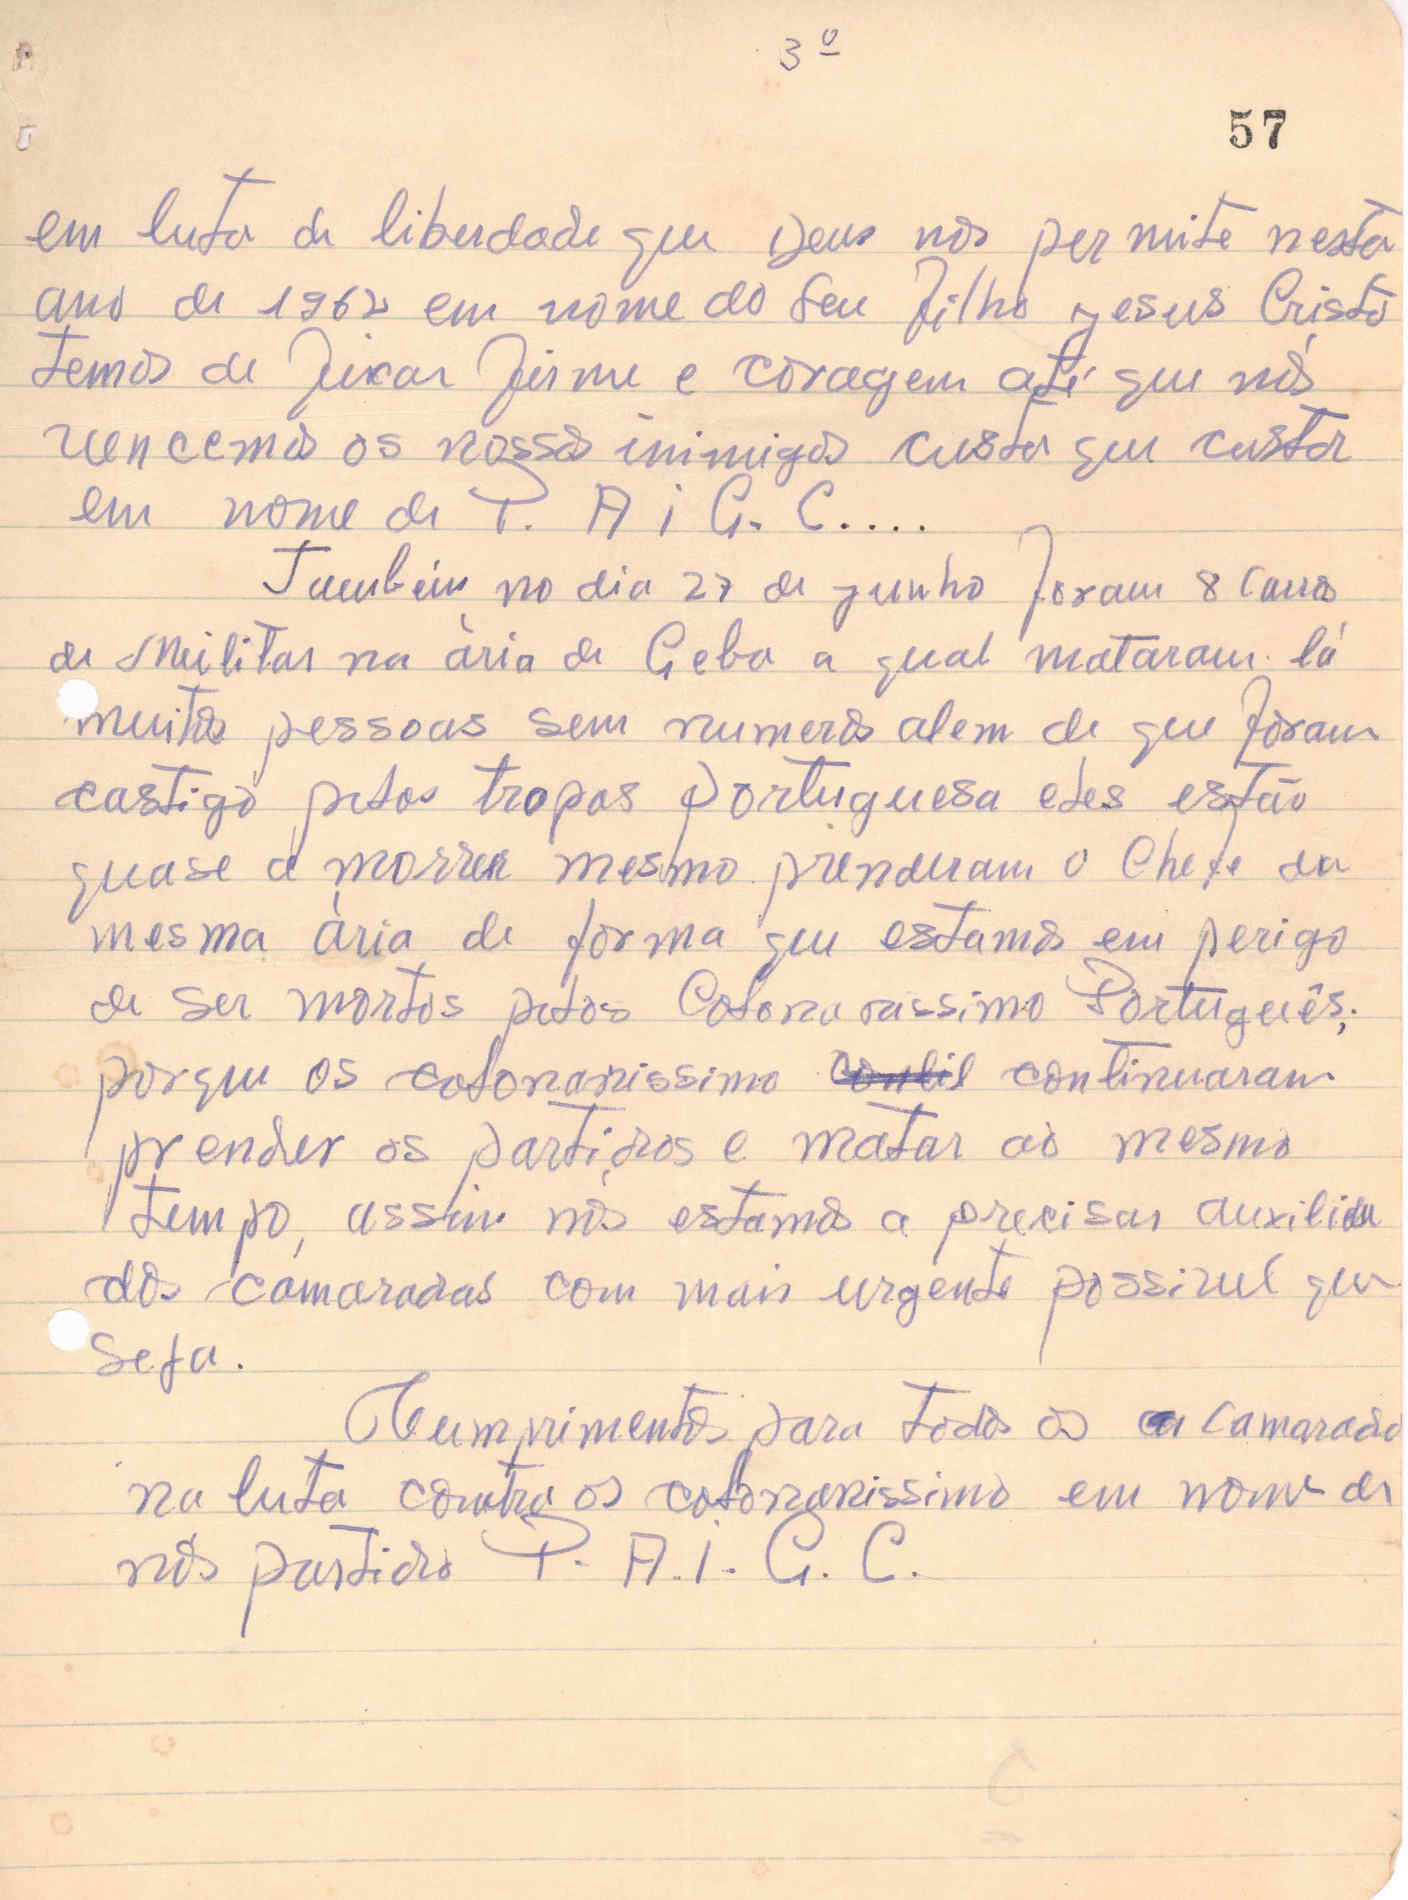 3º
57
em luta de liberdade que Deus nós permite nesta
ano de 1962 em nome do Seu filho Jesus Cristo
temos de fixar firme e coragem até que nós
vencemos os nossos inimigos custa que custar
em nome de P. A i G. C....
Também no dia 27 de junho foram 8 carros
de Militar na ária de Geba a qual mataram lá
muitos pessoas sem numeros alem de que foram
castigo pelos tropas Portuguesa eles estão
quase a morrer mesmo prenderam o Chefe da
mesma ária de forma que estamos em perigo
de ser mortos pelos Colonanissimo Português;
porque os colonanissimo continuaram
prender os partidos e matar ao mesmo
tempo, assim nós estamos a precisar auxilio
dos camaradas com mais urgente possivel que
seja.
Cumprimentos para todos os camarada
na luta contra os colonanissimo em nome de
nós partido P. A. i. G. C.